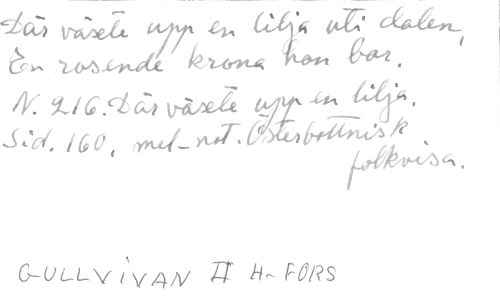 Där växte upp en lilja uti dalen,
En rosende krona hon bar.
N. 216. Där växte upp en lilja.
Sid. 160, mel-not. Österbottnisk
folkvisa.
GULLVIVAN II H-FORS